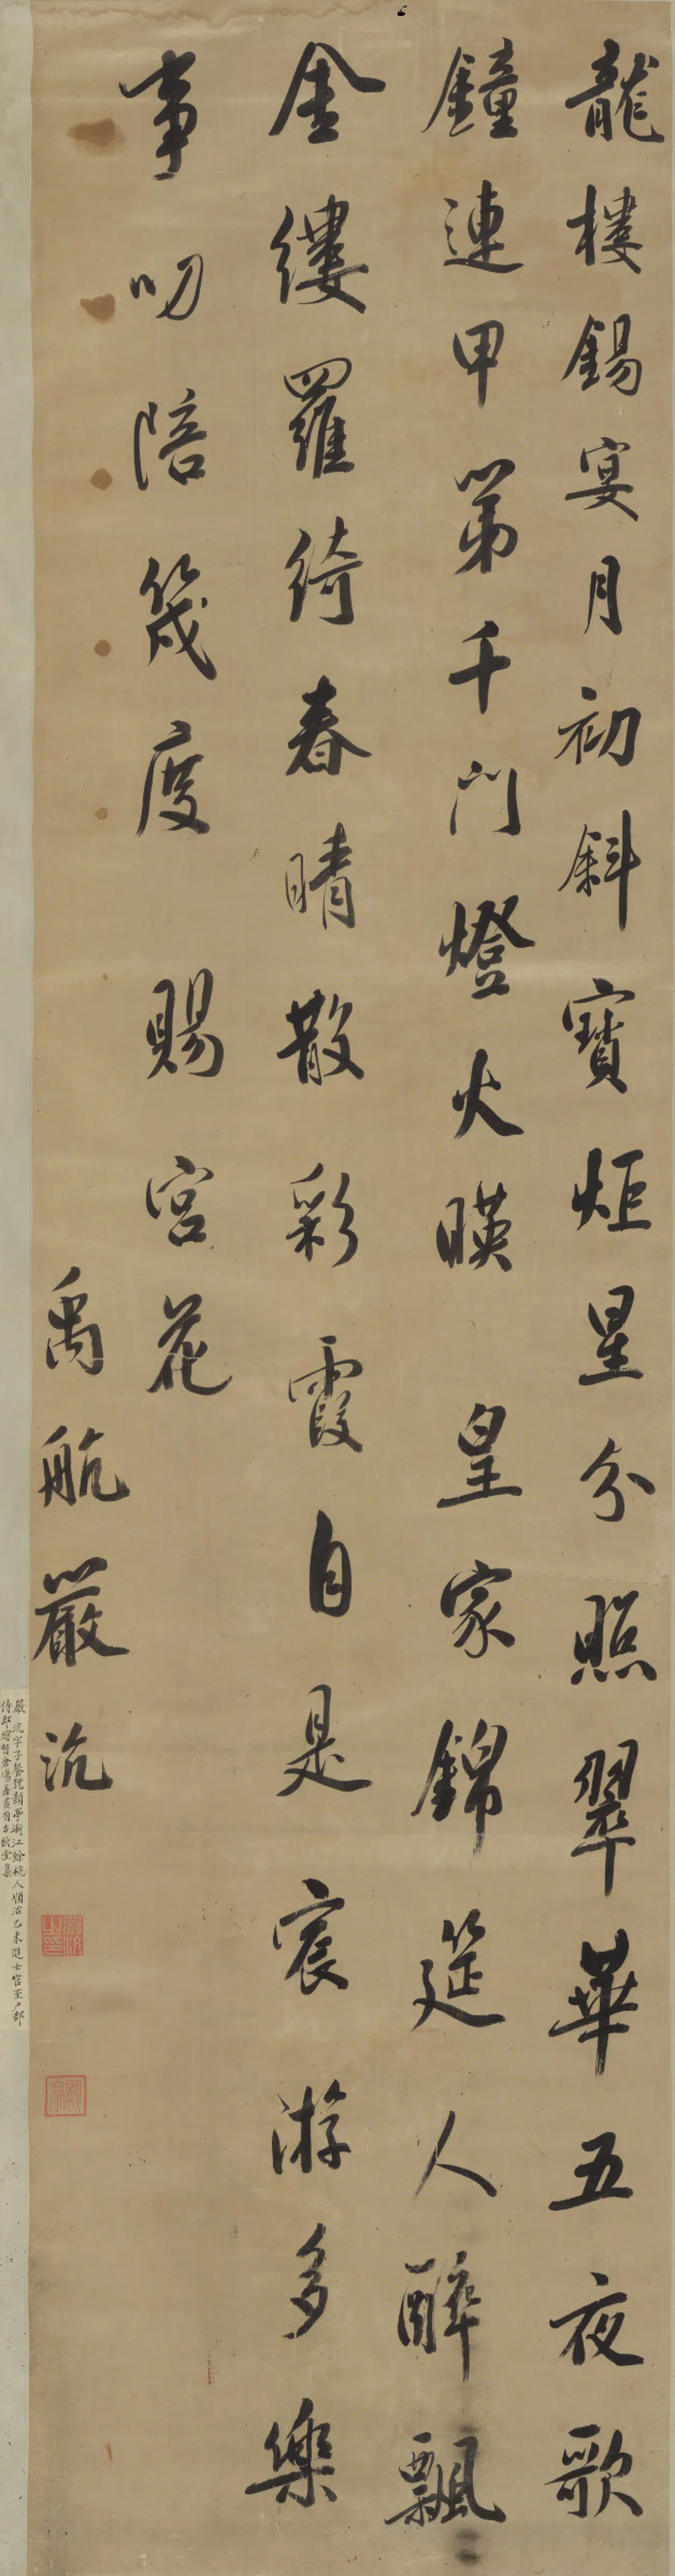 龍樓錫宴月初斜寶炬星分照翠華五夜歌
鐘連甲第千門燈火暎皇家錦筵人醉飄
金縷羅綺春晴散彩霞自是宸游多樂
事叨陪幾度賜宮花
禹航嚴沆
嚴沆字子餐號顥亭浙江餘杭人順治乙未進士官至戶部
侍郎總督倉場善畫有古秋堂集